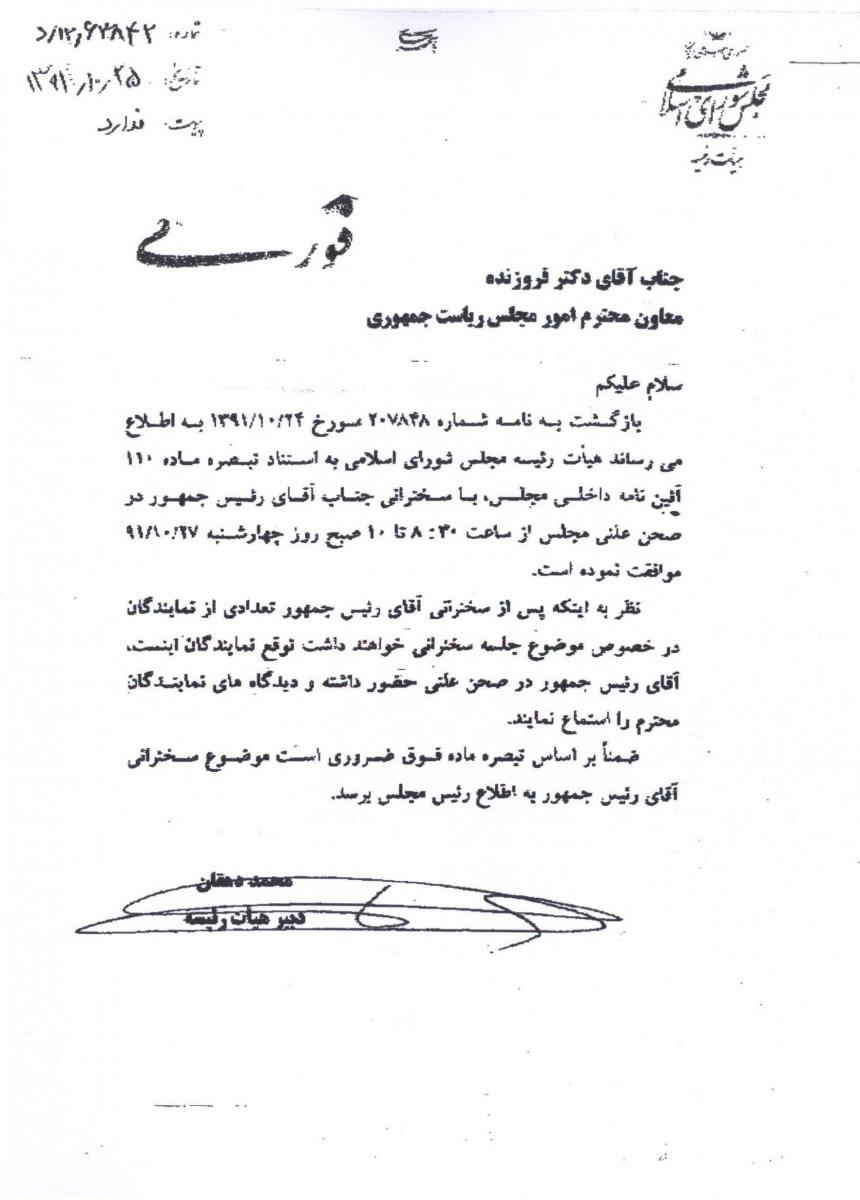 باسمه تعالی
جمهوری اسلامی ایران
مجلس شورای اسلامی
هیئت رئیسه
شماره: ۶۲۸۴۲/
تاریخ: ۱۳۹۱/۱۰/۲۵
پیوست: ندارد
فوری
جناب آقای دکتر فروزنده
معاون محترم امور مجلس ریاست جمهوری
سلام علیکم
بازگشت به نامه شماره ۲۰۷۸۴۸ مورخ ۱۳۹۱/۱۰/۲۴ به اطلاع
می رساند هیأت رئیسه مجلس شورای اسلامی به استناد تبصره ماده ۱۱۰
آئین نامه داخلی مجلس، با سخنرانی جناب آقای رئیس جمهور در
صحن علنی مجلس از ساعت ۸:۳۰ تا ۱۰ صبح روز چهارشنبه ۹۱/۱۰/۲۷
موافقت نموده است.
نظر به اینکه پس از سخنرانی آقای رئیس جمهور تعدادی از نمایندگان
در خصوص موضوع جلسه سخنرانی خواهند داشت توقع نمایندگان اینست،
آقای رئیس جمهور در صحن علنی حضور داشته و دیدگاه های نمایندگان
محترم را استماع نمایند.
ضمناً بر اساس تبصره ماده فوق ضروری است موضوع سخنرانی
آقای رئیس جمهور به اطلاع رئیس مجلس برسد.
محمد دهقان
دبیر هیأت رئیسه